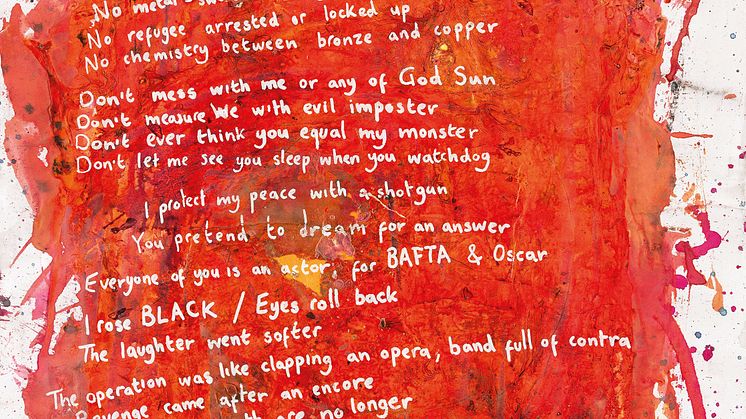 No metal
No refugee arrested or locked up
No chemistry between bronze and copper
Don't mess with me or any of God Sun
Don't measure We with evil imposter
Don't ever think you equal my monster
Don't let me see you sleep when you watchdog
I protect my peace with a shotgun
You pretend to dream for an answer
Everyone of you is an actor, for BAFTA & Oscar
I rose BLACK / Eyes roll back
The laughter went softer
The operation was like clapping an opera, band full of contra
Revenge came after an encore
are no longer